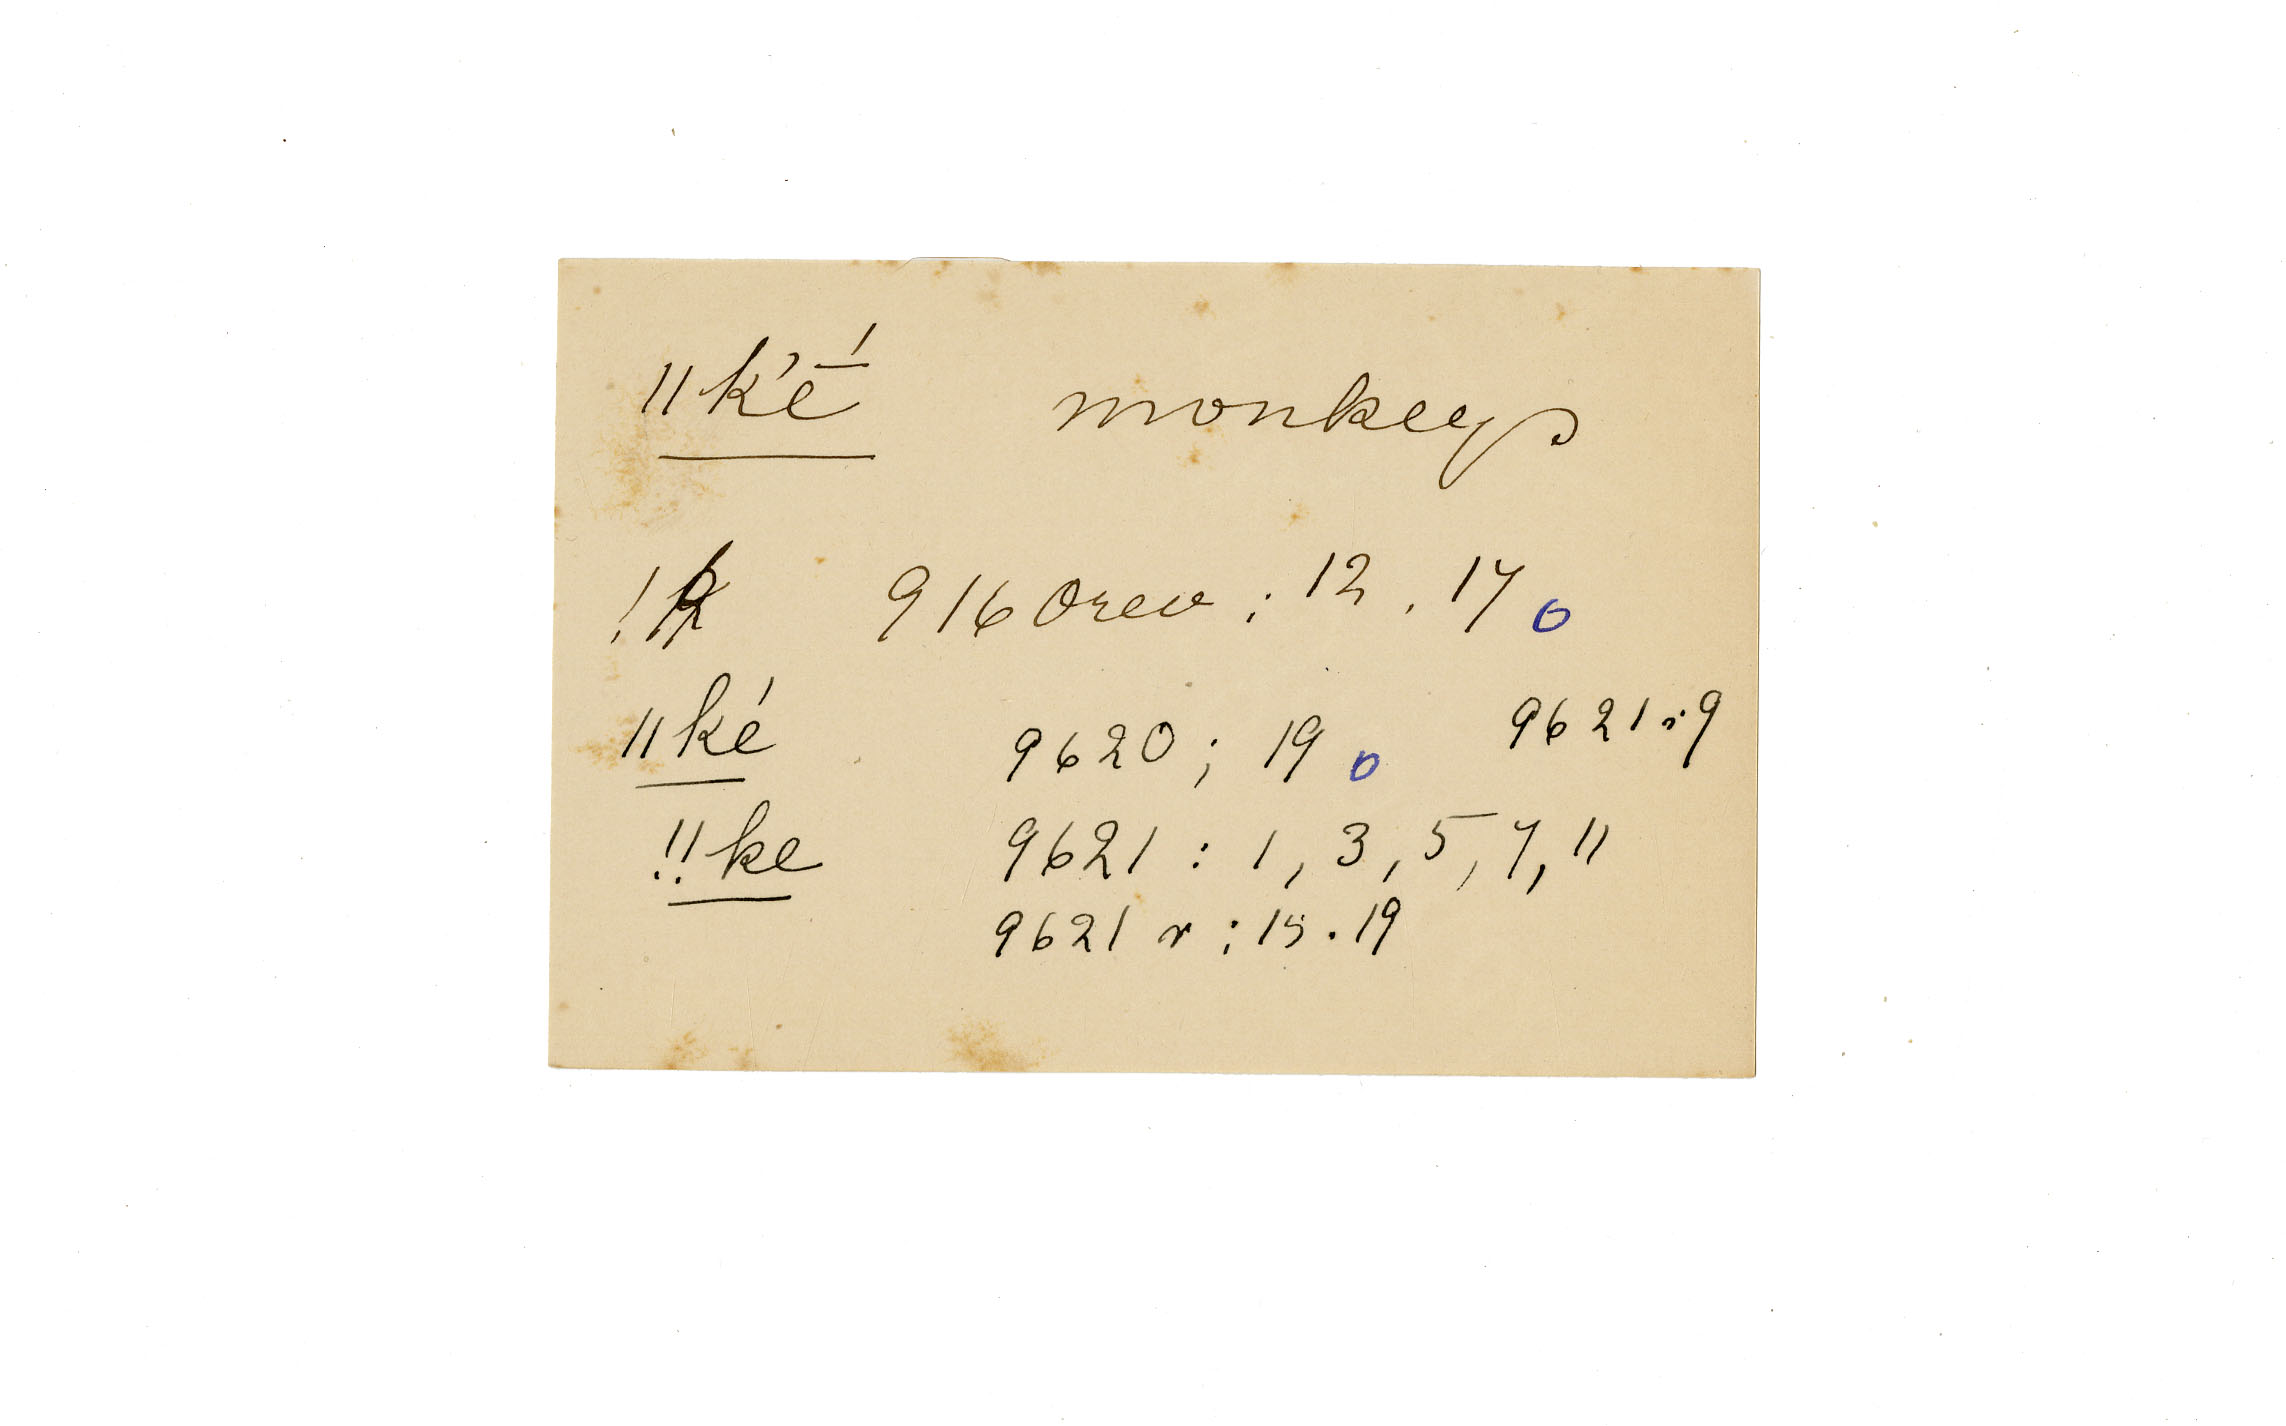 ǁk'é̄ monkeys
!k 9160rev : 12 . 17 o
ǁké 9620 ; 19 o 9621 : 9
!!ke 9621 : 1 , 3 , 5 , 7 , 11
9621 r : 15 . 19